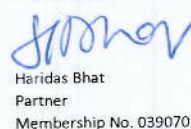 Haridas Bhat
Partner
Membership No. 039070